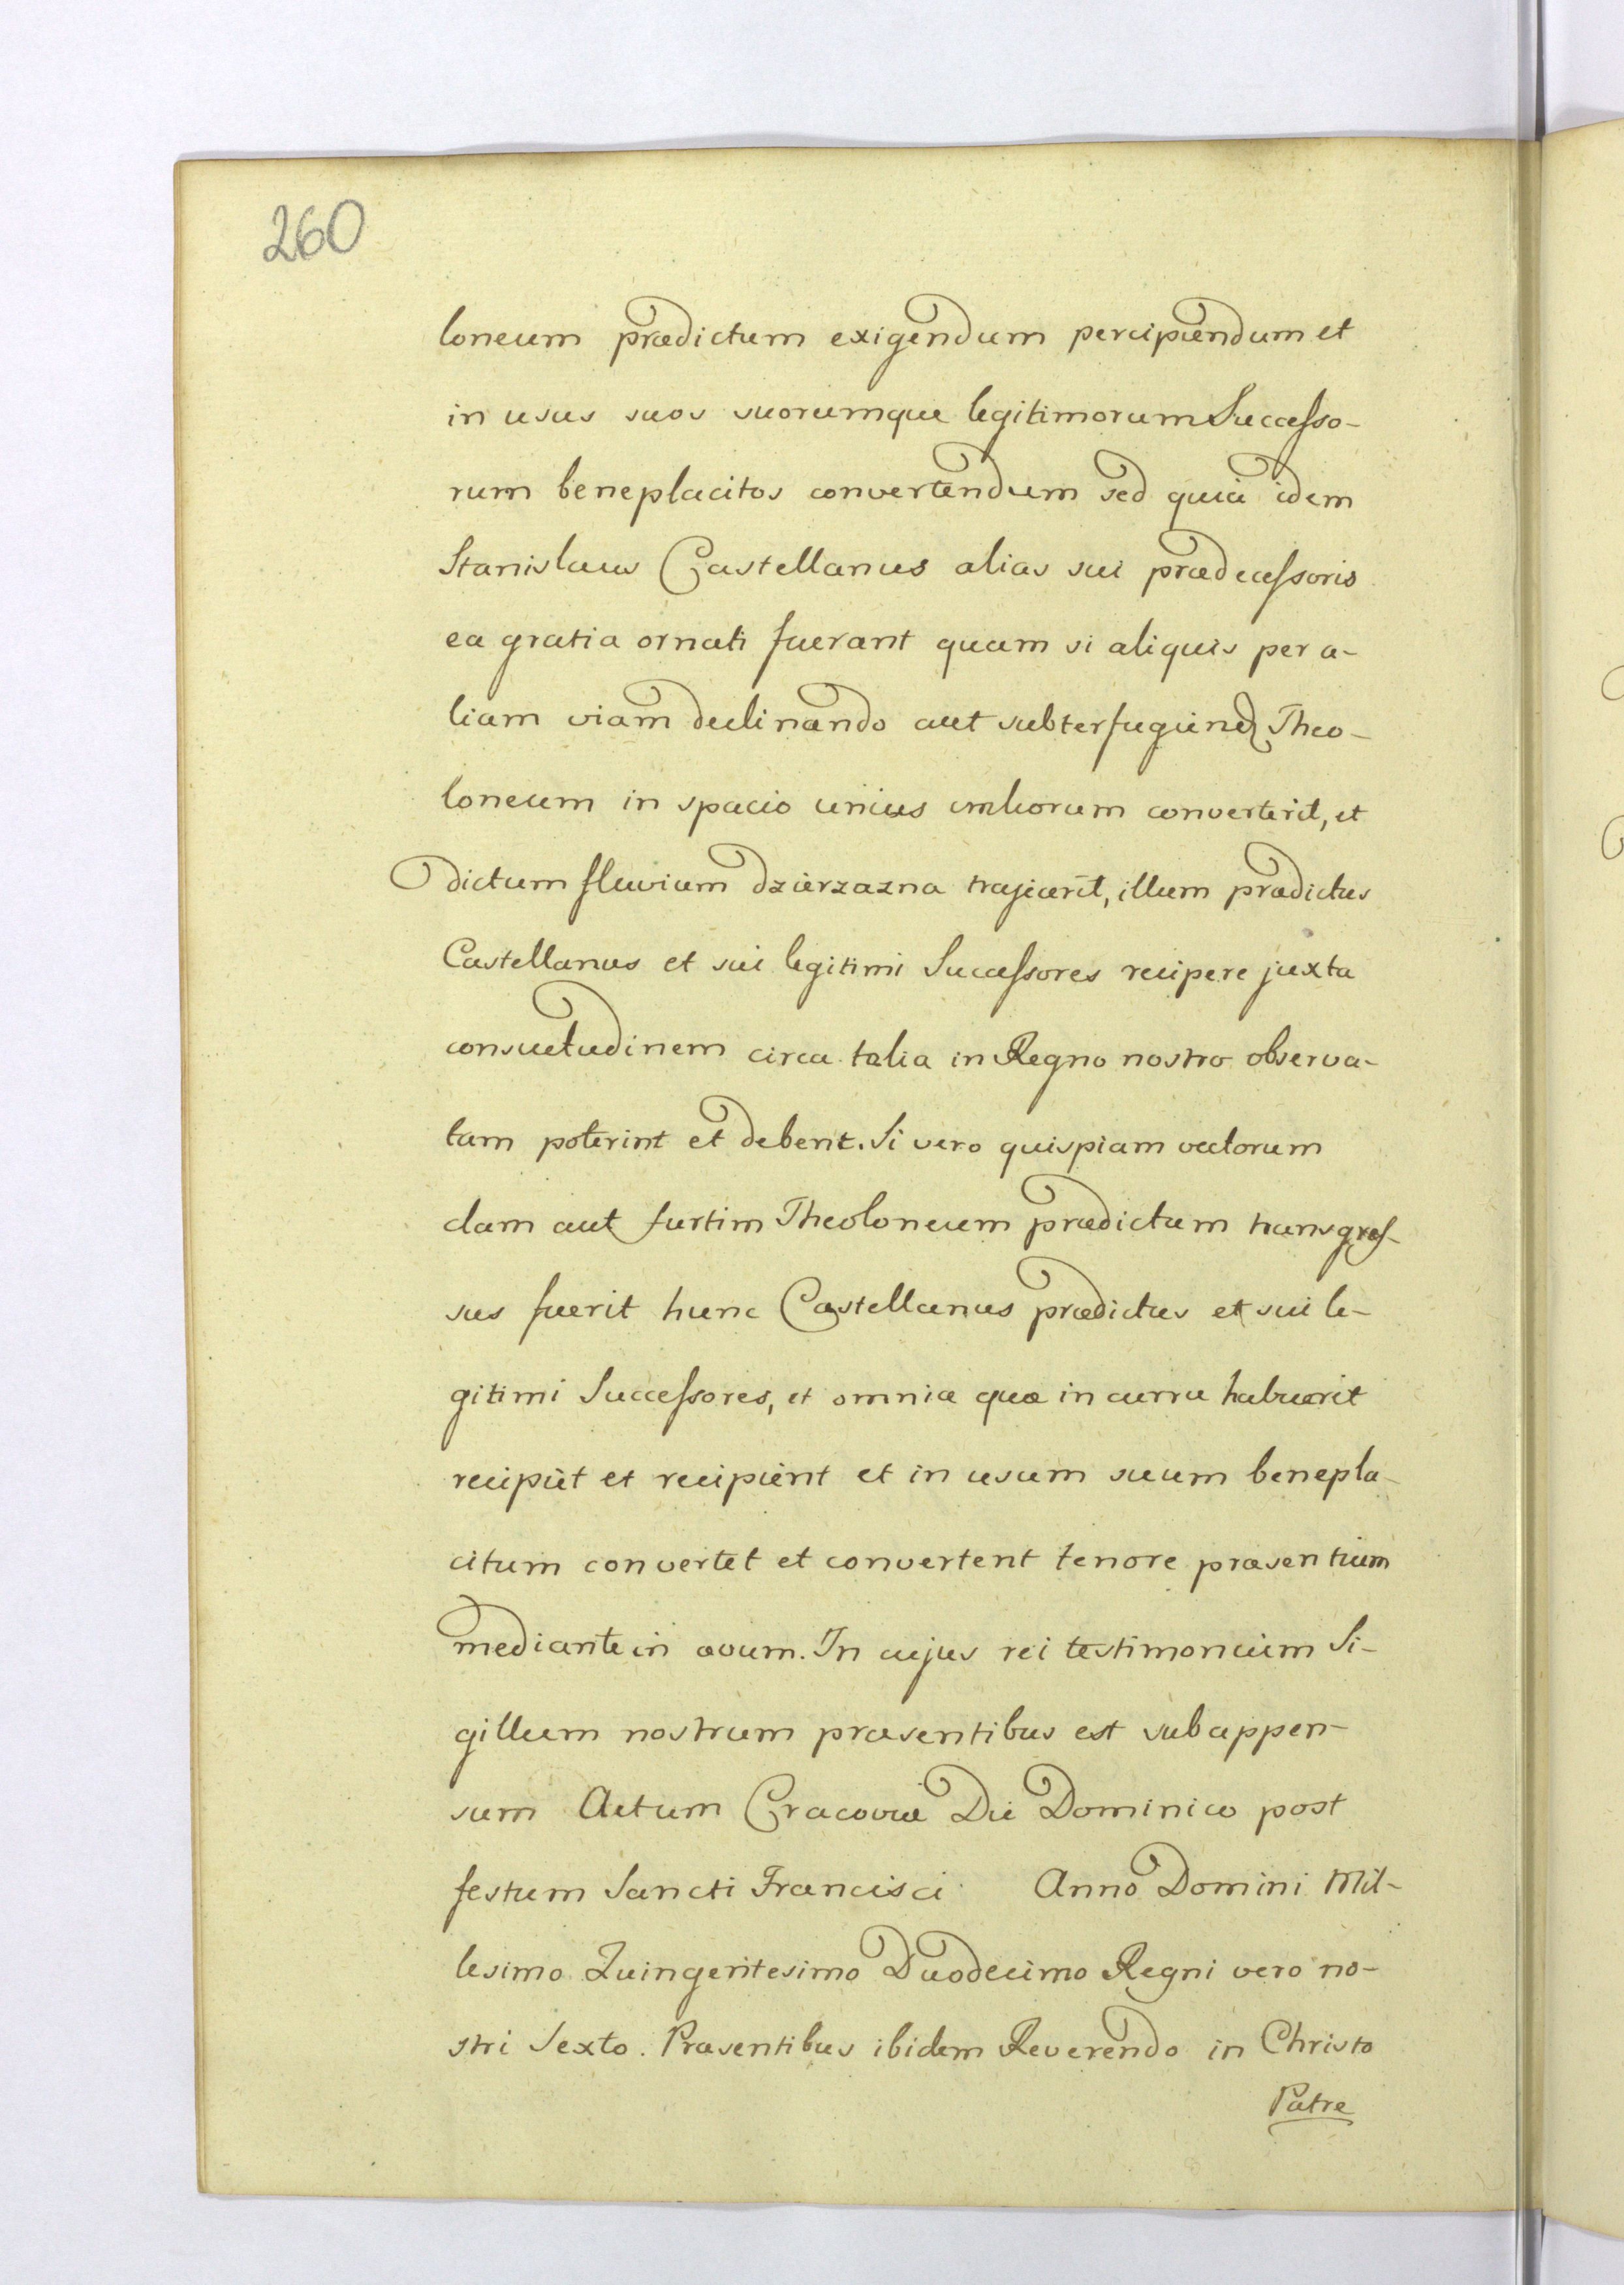 260
loneum prædictum exigendum percipiendum et
in usus suos suorumque legitimorum Succeſso-
rum beneplacitos convertendum sed quia idem
Stanislaus Castellanus alias sui prædeceſsoris
ea gratia ornati fuerant quam si aliquis per a-
liam viam declinando aut subterfugiend Theo-
loneum in spacio unius converterit, et
dictum fluvium dzierzazna trajecerit, illum prædictus
Castellanus et sui legitimi Succeſsores recipere juxta
consuetudinem circa talia in Regno nostro observa-
tam poterint et debent. Si vero quispiam vectorum
clam aut furtim Theoloneum prædictum transgreſ-
sus fuerit hunc Castellanus prædictus et sui le-
gitimi Succeſsores, et omnia quæ in curru habuerit
recipiet et recipient et in usum suum benepla-
citum convertet et convertent tenore præsentium
mediante in ævum. In cujus rei testimonium Si-
gillum nostrum præsentibus est subappen-
sum Actum Cracoviæ Die Dominico post
festum Sancti Francisci Anno Domini Mil-
lesimo Quingentesimo Duodecimo Regni vero no-
stri Sexto. Præsentibus ibidem Reverendo in Christo
Patre